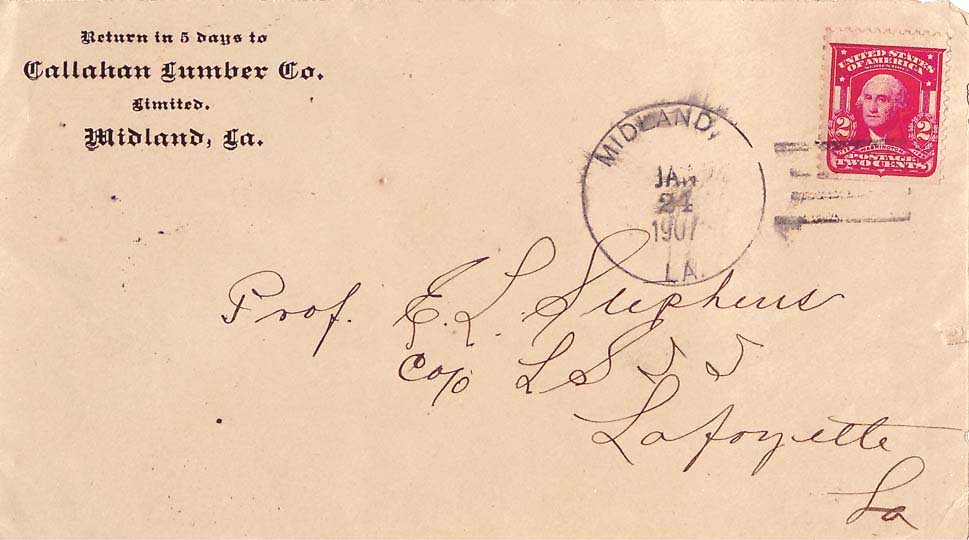 Return in 5 days to
Callahan Lumber Co.
Limited.
Midland, La.
MIDLAND,
JAN
24
1907
LA.
UNITED STATES
OF AMERICA
2 2
WASHINGTON
POSTAGE
TWO CENTS
Prof. E. L. Stephens
C/o L S J J
Lafayette
La